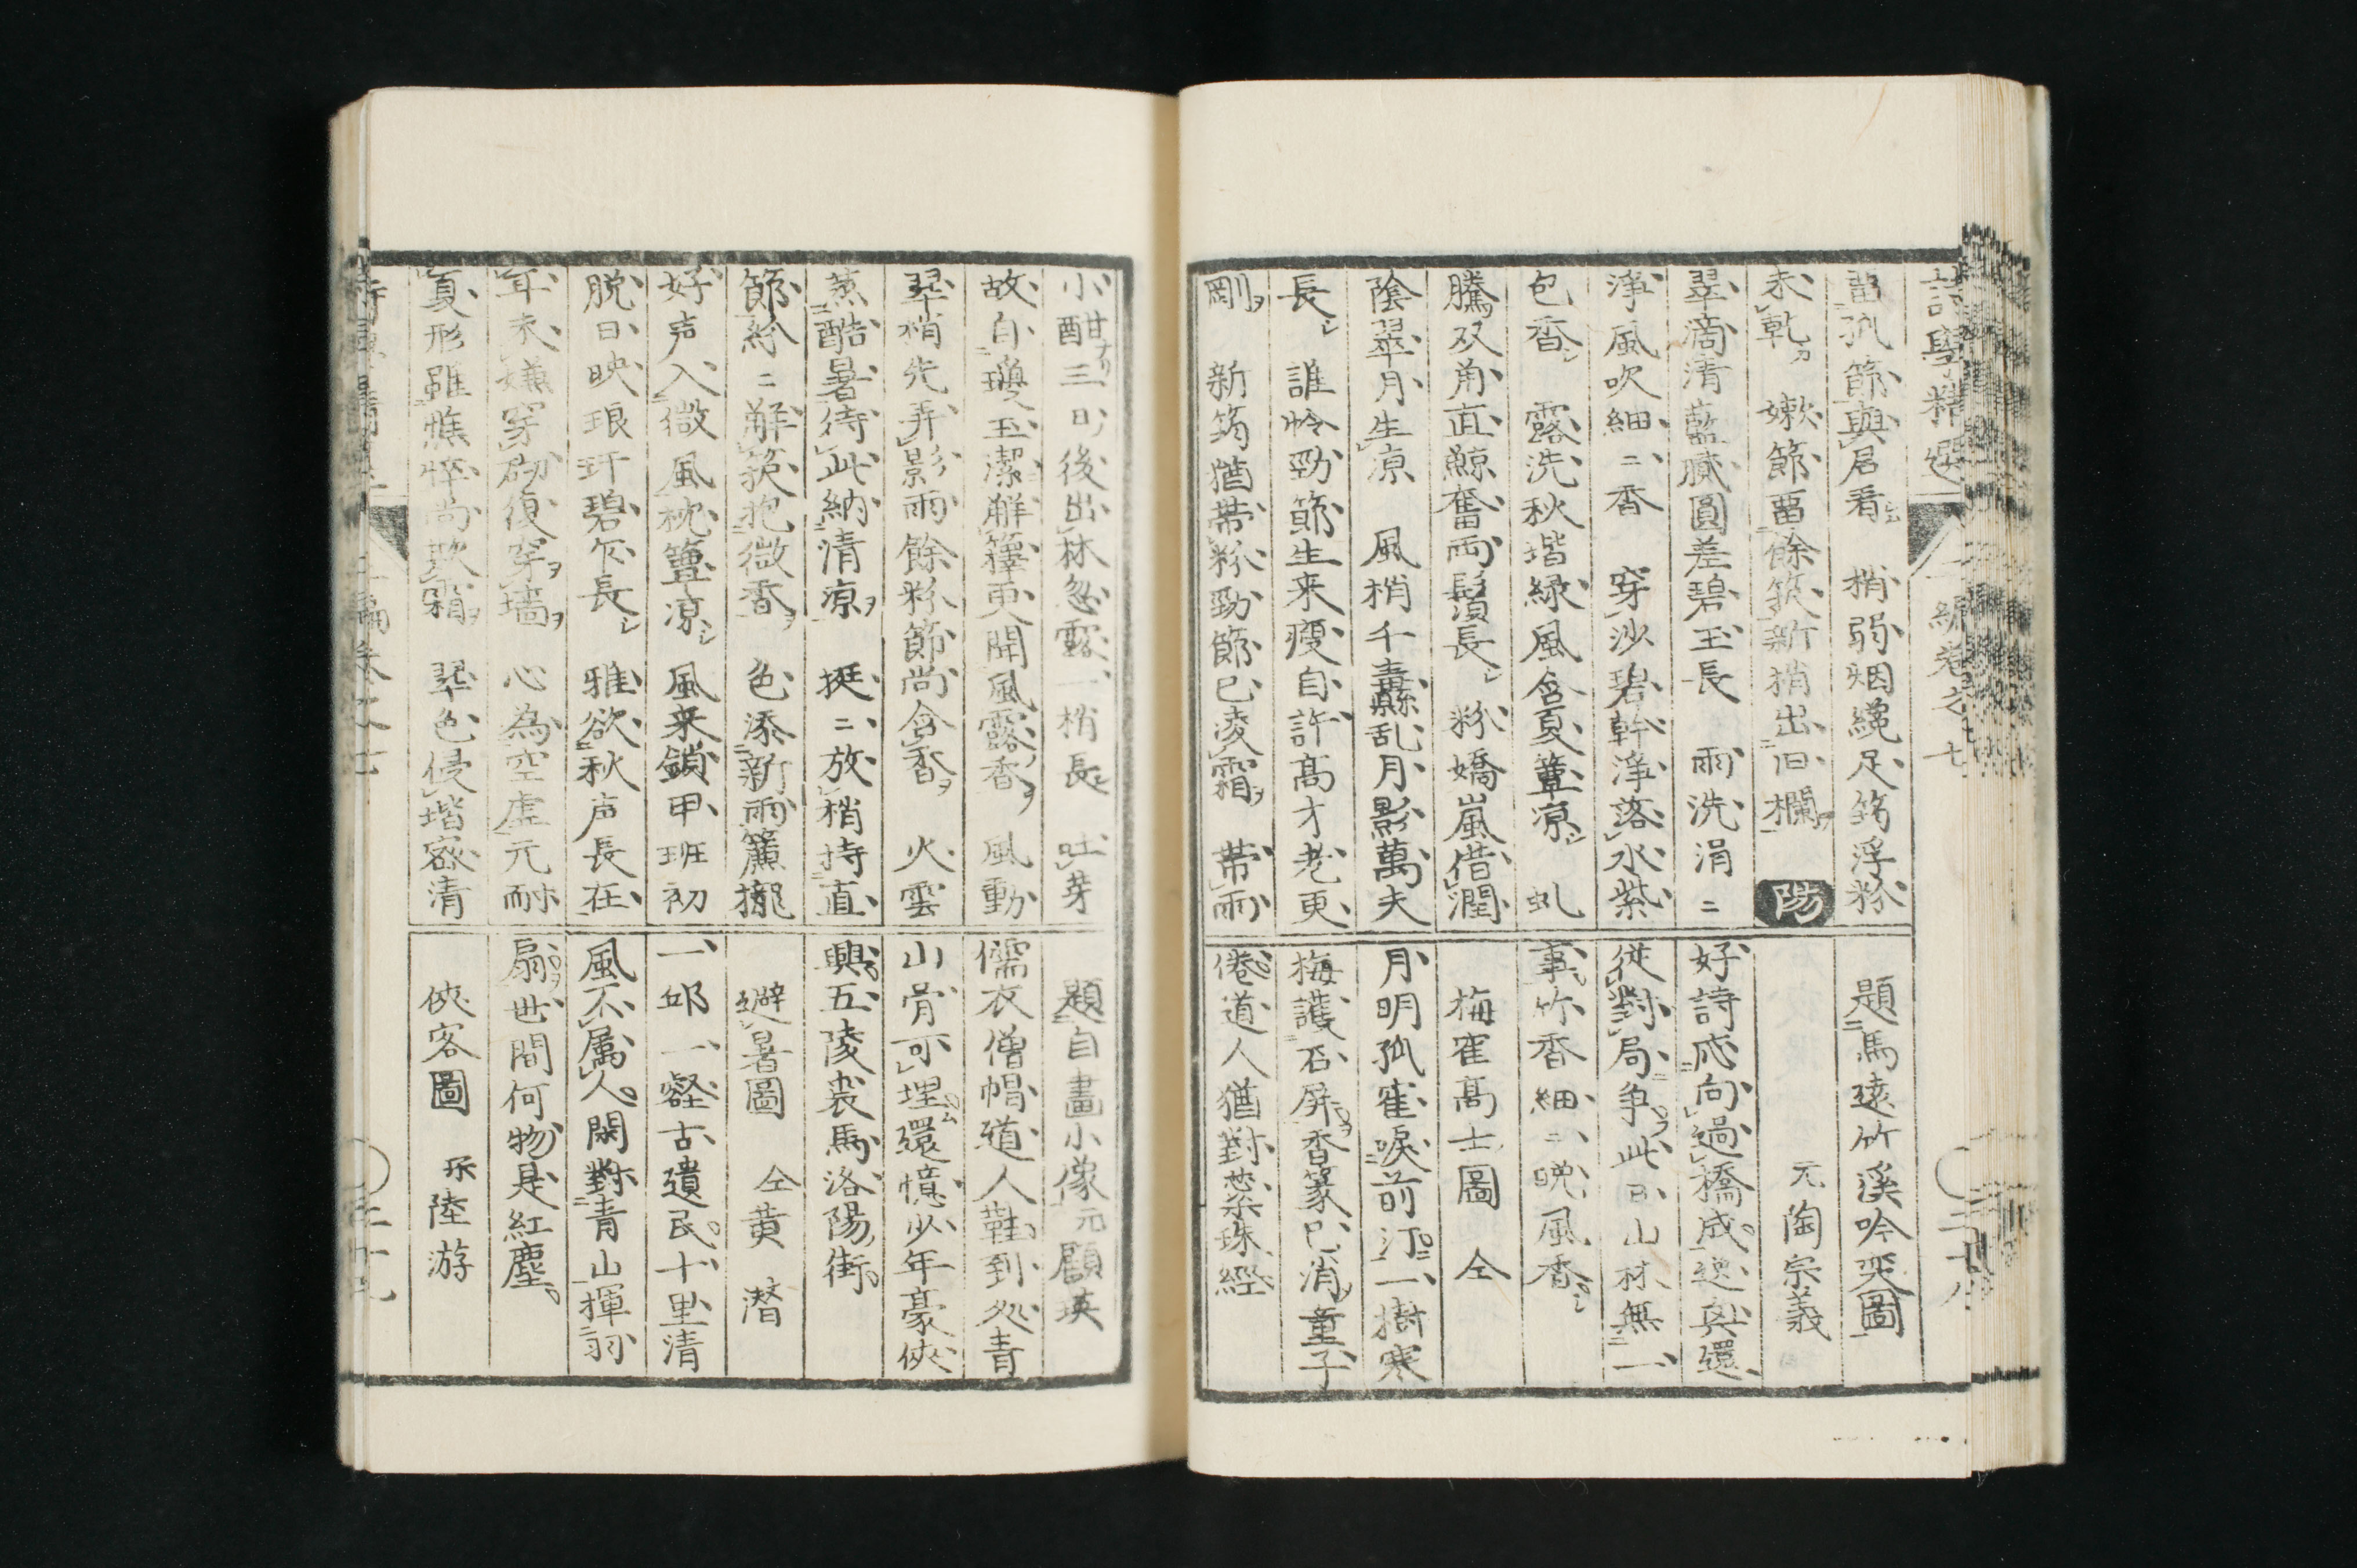 詩學精選 二編卷之七 二十八
畱孤節與君看 梢弱烟纔足筠浮粉
未乾 嫰節畱餘笋新梢出旧欄 陽
翠滴清藍膩圓差碧玉長 雨洗涓〻
淨風吹細〻香 穿沙碧幹淨落水紫
包香 露洗秋堦緑風含夏簟凉 虬
騰双角直鯨奮両鬚長 粉嬌嵐借潤
陰翠月生凉 風梢千纛乱月影萬夫
長 誰怜勁節生来瘦自許高才老更
剛 新筠猶帯粉勁節已凌霜 帯雨
題馬遠竹溪吟奕圖
元陶宗義
好詩應向過橋成逸興還
從對局争此日山林無一
事竹香細〻晩風香
梅隺高士圖 仝
月明孤隺唳前汀一樹寒
梅護石屏香篆已消童子
倦道人猶對蘂珠經
小酣三日後出林忽露一梢長 吐芽
故自瓊玉潔解籜更聞風露香 風動
翠梢先弄影雨餘粉節尚含香 火雲
蒸酷暑待此納清凉 挺〻放梢持直
節紛〻解笋抱微香 色添新雨簾櫳
好声入微風枕簟凉 風来鎖甲班初
脱日映琅玕碧乍長 雅欲秋声長在
耳未嫌穿砌復穿墻 心為空虚元耐
夏形雖憔悴尚欺霜 翠色侵堦密清
題自畫小像 元顧瑛
儒衣僧帽道人鞋到処青
山骨可埋還憶少年豪侠
興五陵裘馬洛陽街
避暑圖 仝黄潜
一邱一壑古遺民十里清
風不属人閑對青山揮羽
扇世間何物是紅塵
侠客圖 宋陸游